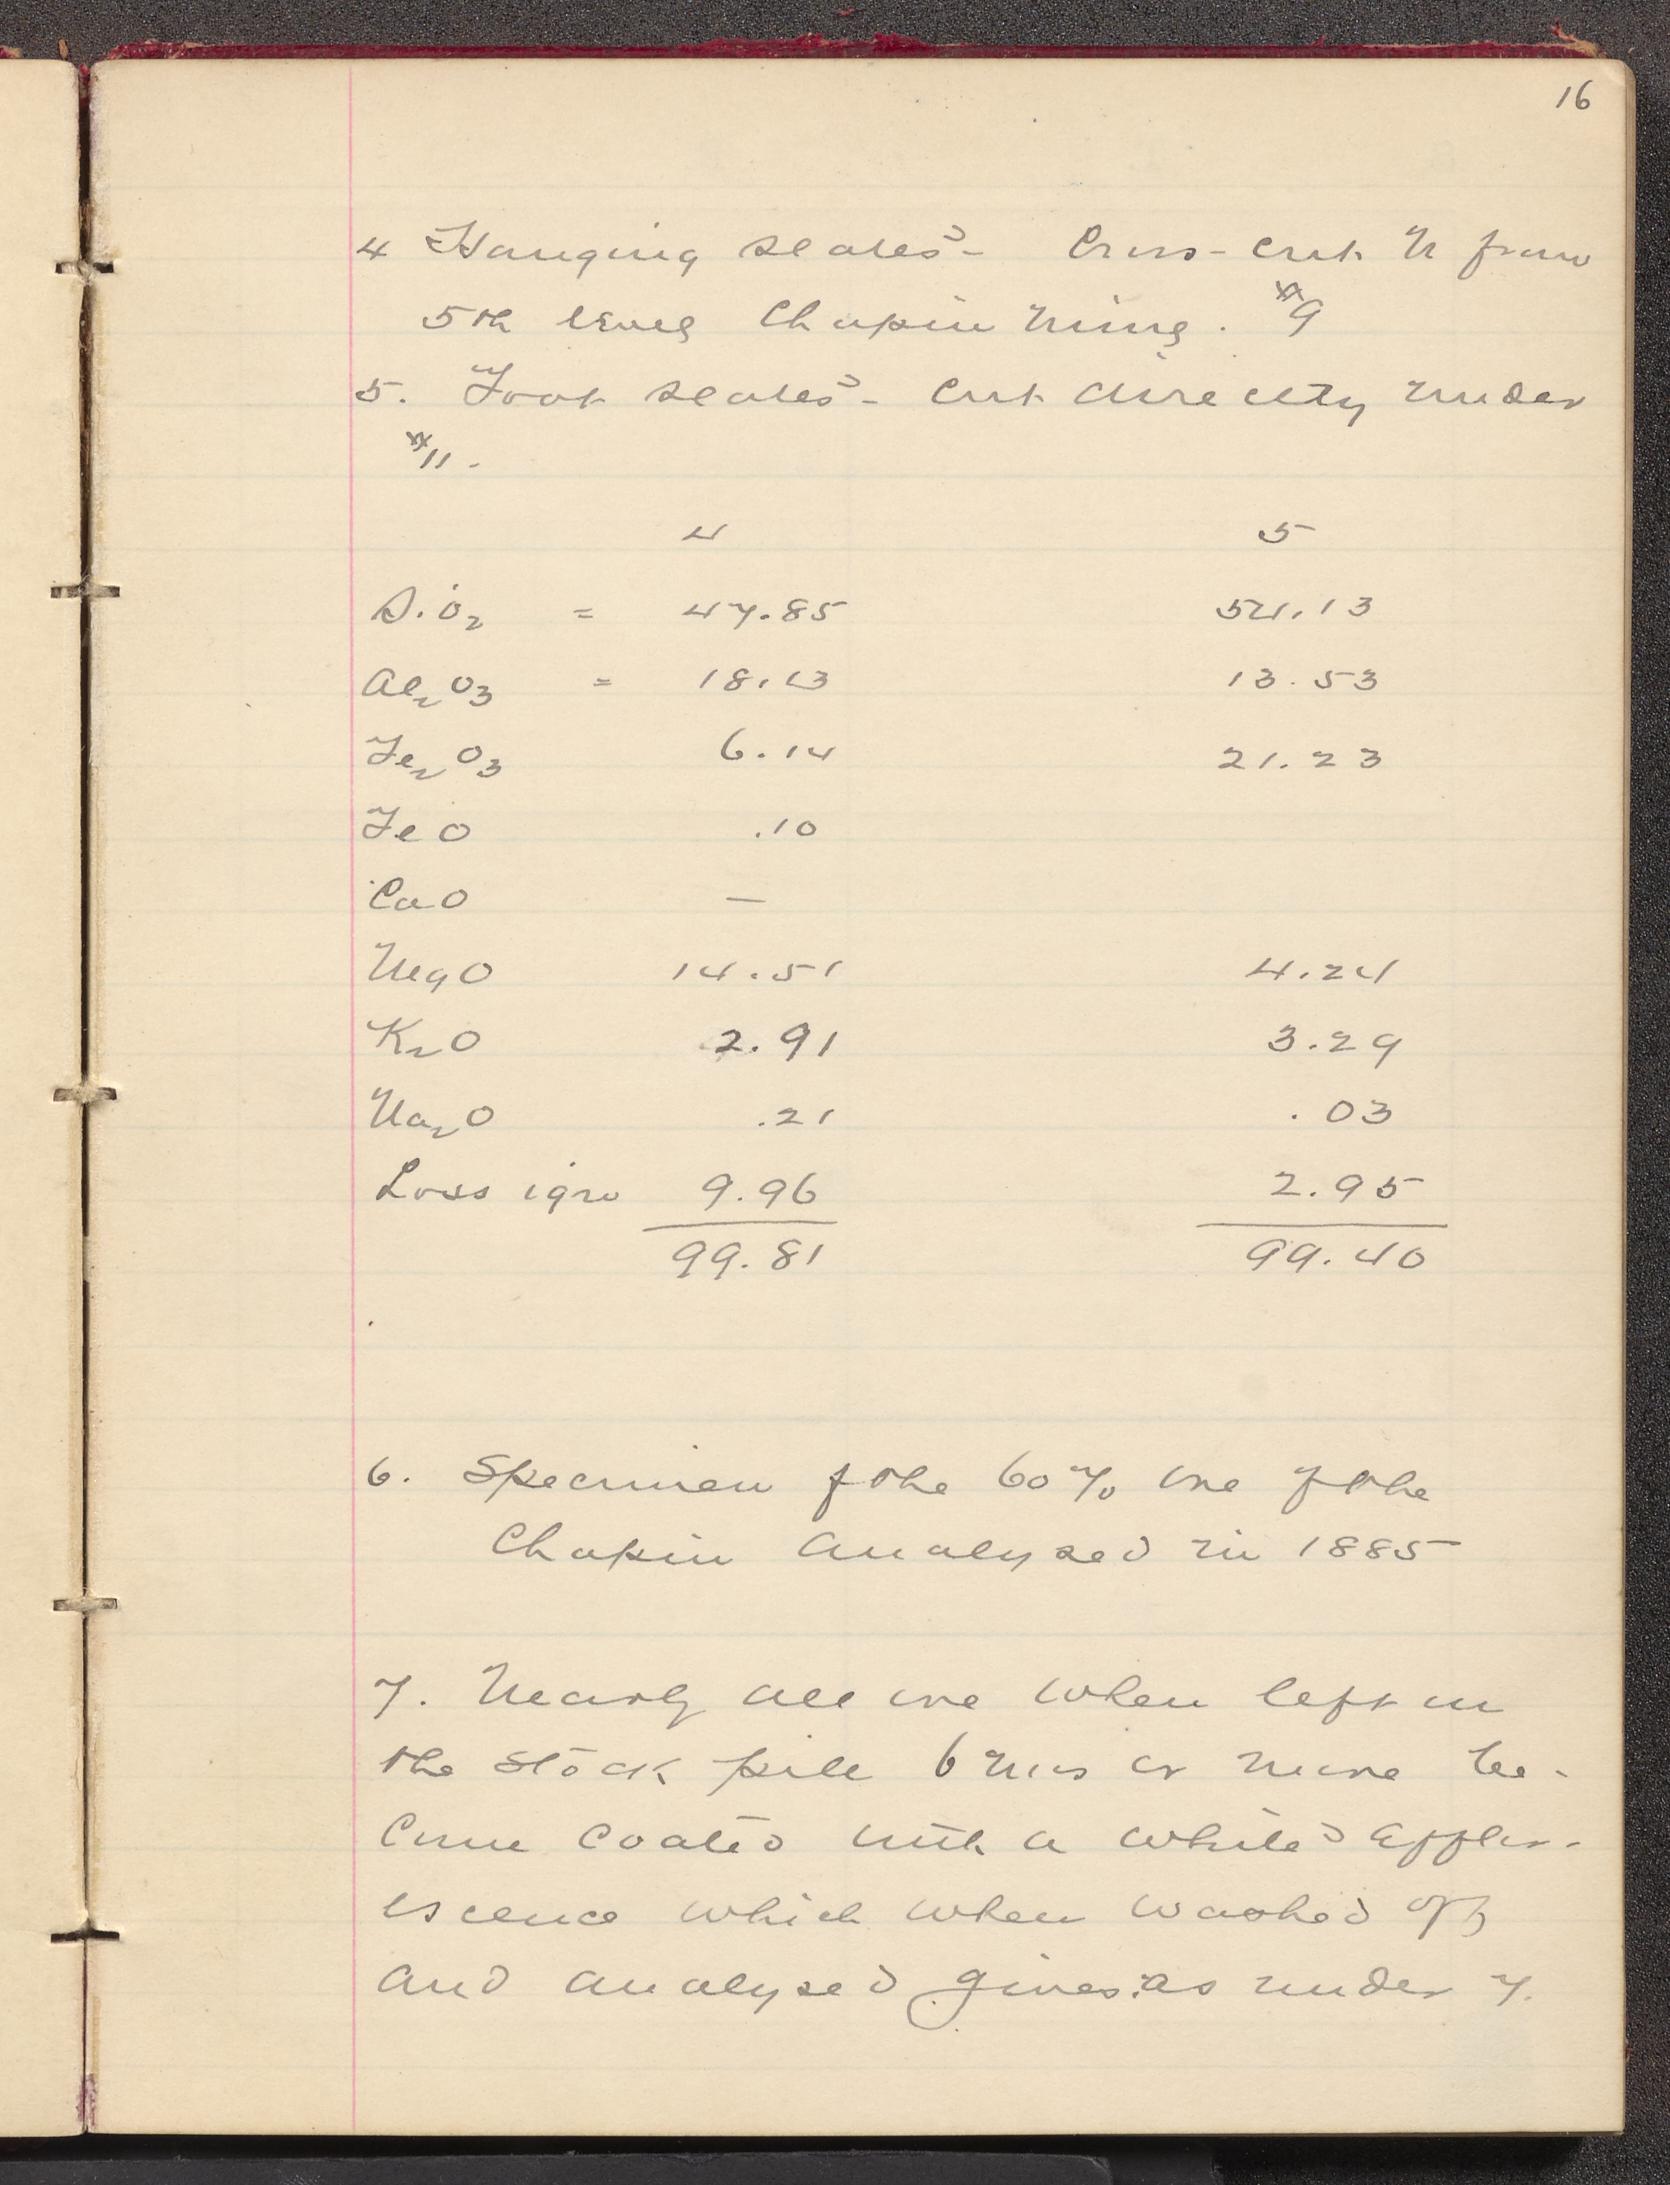 16
4 Hanging slates - Cross-cut N from
5th level Chapin Mine. #9
5. Foot slates - Cut directly under
#11.
4 5
SiO2 = 47.85 54.13
Al2O3 = 18.13 13.53
Fe2O3 6.14 21.23
FeO .10
CaO —
MgO 14.51 4.24
K2O 2.91 3.29
Na2O .21 .03
Loss ign 9.96 2.95
99.81 99.40
6. Specimen of the 60% ore of the
Chapin Analysed in 1885
7. Nearly all ore when left in
the Stock pile 6 mos or more be-
come coated with a white efflor-
escence which when washed off
and analysed gives: as under 7.